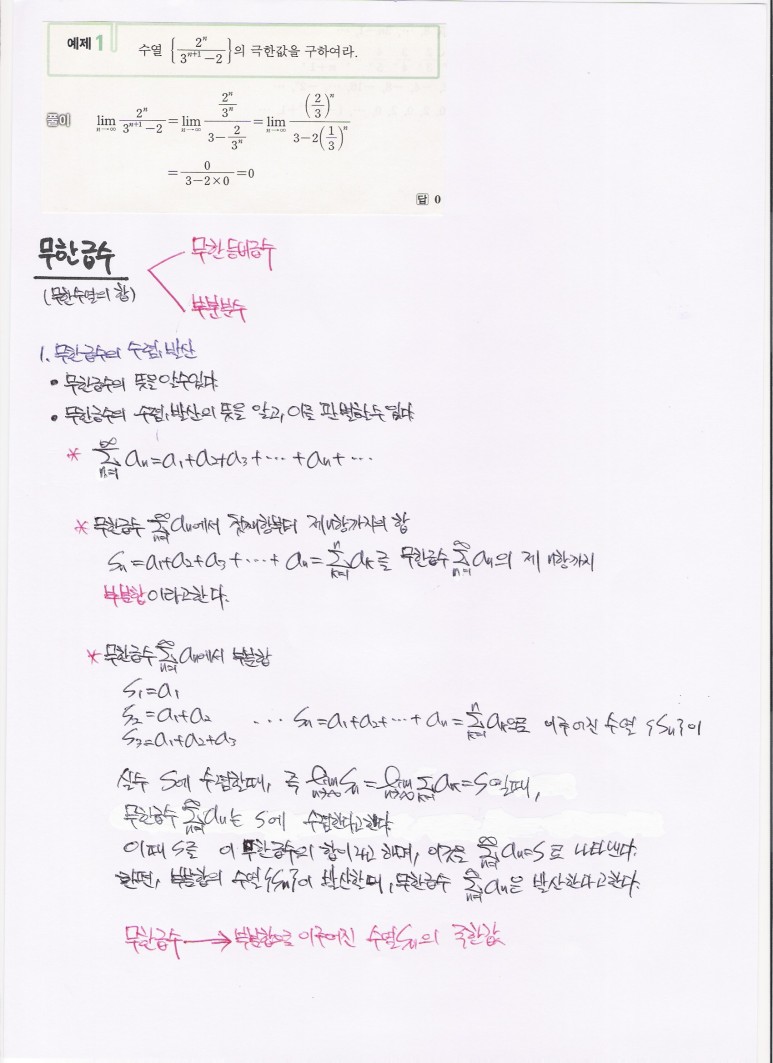 예제 1 수열 {2ⁿ/(3ⁿ⁺¹−2)}의 극한값을 구하여라.
풀이 lim(n→∞) 2ⁿ/(3ⁿ⁺¹−2) = lim(n→∞) (2ⁿ/3ⁿ)/(3−2/3ⁿ) = lim(n→∞) (2/3)ⁿ/(3−2(1/3)ⁿ)
= 0/(3−2×0) = 0
답 0
무한급수
무한등비급수
(무한수열의 합)
부분분수
1. 무한급수의 수렴, 발산
• 무한급수의 뜻을 알 수 있다
• 무한급수의 수렴, 발산의 뜻을 알고, 이를 판별할 수 있다
* ∑(n=1,∞) aₙ = a₁+a₂+a₃+⋯+aₙ+⋯
* 무한급수 ∑(n=1,∞) aₙ에서 첫째항부터 제 n항까지의 합
Sₙ = a₁+a₂+a₃+⋯+aₙ = ∑(k=1,n) aₖ를 무한급수 ∑(n=1,∞) aₙ의 제 n항까지
부분합이라고한다.
* 무한급수 ∑(n=1,∞) aₙ에서 부분합
S₁=a₁
S₂=a₁+a₂ ⋯ Sₙ=a₁+a₂+⋯+aₙ=∑(k=1,n) aₖ으로 이루어진 수열 {Sₙ}이
S₃=a₁+a₂+a₃
실수 S에 수렴할때, 즉 lim(n→∞) Sₙ = lim(n→∞) ∑(k=1) aₖ = S일때,
무한급수 ∑(n=1,∞) aₙ는 S에 수렴한다고한다
이때 S를 이 무한급수의 합이라고 하며, 이것을 ∑(n=1,∞) aₙ=S로 나타낸다.
한편, 부분합의 수열 {Sₙ}이 발산할때, 무한급수 ∑(n=1,∞) aₙ은 발산한다고한다.
무한급수 → 부분합으로 이루어진 수열 Sₙ의 극한값